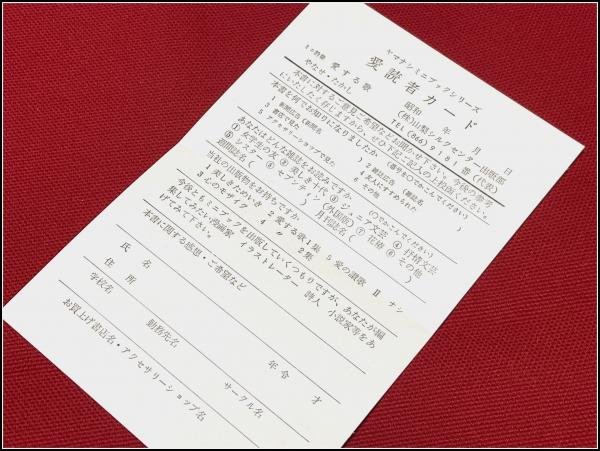 ヤマナシミニブックシリーズ
愛読者カード
昭和 年 月 日
ミニ詩集 愛する歌
やなせ・たかし
(株)山梨シルクセンター出版部
TEL(866)3181番(代表)
本書に対するご意見ご希望などお聞かせ下さい。今後の参考
にいたしたく存じますから、ぜひ下記ご記入の上投函ください。
本書を何でお知りになりましたか(番号を○でかこんでください)
1 新聞広告(新聞名 ) 2 雑誌広告(雑誌名 )
3 書店で見た 4 友人にすすめられた
5 アクセサリーショップで見た 6 その他
あなたはどんな雑誌をお読みですか。(○でかこんでください)
① 女学生の友 ② 美しき十代 ③ ジュニア文芸 ④ 抒情文芸
⑤ シスター ⑥ セブンティン(外国版) ⑦ 花椿 ⑧ その他
週間誌名( ) 月刊誌名( )
当社の出版物をお持ちですか
1 美しきためいき 2 愛する歌1集 5 愛の讃歌 Ⅱ ナシ
3 心のモザイク 4 〃 2集
今後ともミニブックを出版していくつもりですが、あなたが編
集してみたい漫画家 イラストレーター 詩人 小説家等をあ
げてみて下さい。
本書に関する感想・ご希望など
氏名 年令 才
住所
学校名 勤務先名 サークル名
お買上げ書店名・アクセサリーショップ名